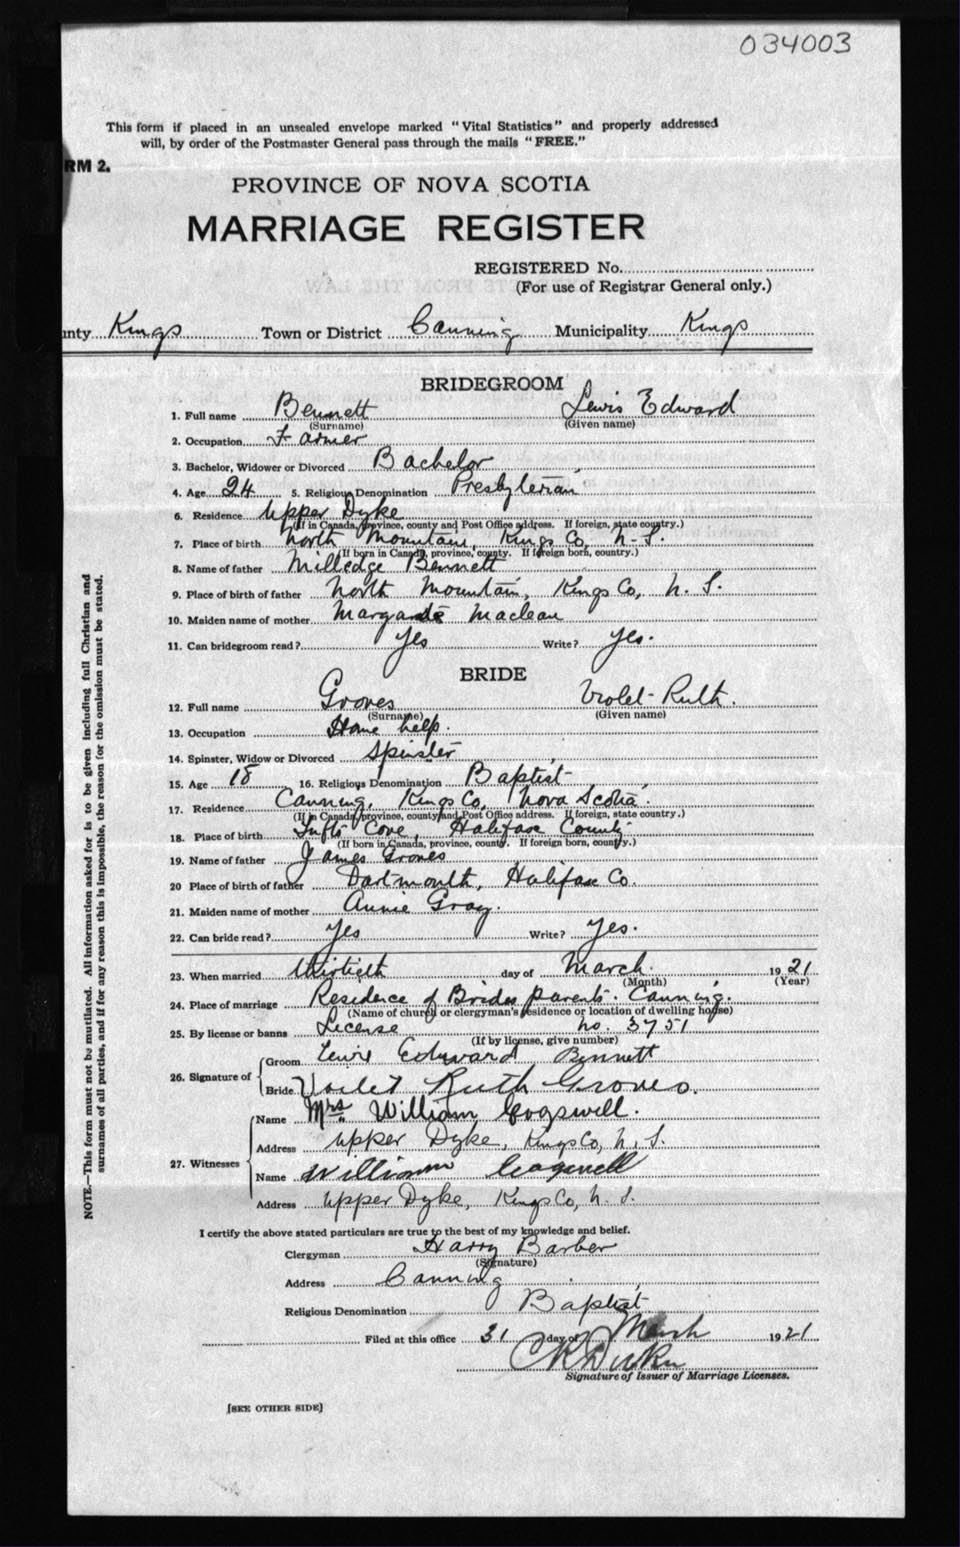 034003
This form if placed in an unsealed envelope marked "Vital Statistics" and properly addressed
will, by order of the Postmaster General pass through the mails "FREE."
RM 2.
PROVINCE OF NOVA SCOTIA
MARRIAGE REGISTER
REGISTERED No.
(For use of Registrar General only.)
nty Kings Town or District Canning Municipality Kings
BRIDEGROOM
1. Full name Bennett Lewis Edward
(Surname) (Given name)
2. Occupation Farmer
3. Bachelor, Widower or Divorced Bachelor
4. Age 24 5. Religious Denomination Presbyterian
6. Residence Upper Dyke
(If in Canada, province, county and Post Office address. If foreign, state country.)
7. Place of birth North Mountain, Kings Co, N.S.
(If born in Canada, province, county. If foreign born, country.)
8. Name of father Milledge Bennett
9. Place of birth of father North Mountain, Kings Co, N. S.
10. Maiden name of mother Maclean
11. Can bridegroom read? Yes Write? Yes.
BRIDE
12. Full name Groves Violet Ruth.
(Surname) (Given name)
13. Occupation Home help.
14. Spinster, Widow or Divorced Spinster
15. Age 18 16. Religious Denomination Baptist
17. Residence Canning, Kings Co, Nova Scotia.
(If in Canada, province, county and Post Office address. If foreign, state country.)
18. Place of birth Cove, Halifax County
(If born in Canada, province, county. If foreign born, country.)
19. Name of father James Groves
20 Place of birth of father Dartmouth, Halifax Co.
21. Maiden name of mother Annie Gray.
22. Can bride read? Yes Write? Yes.
23. When married thirtieth day of March. 1921
(Month) (Year)
24. Place of marriage Residence of Brides parents. Canning.
(Name of church or clergyman's residence or location of dwelling house)
25. By license or banns License no. 3751
(If by license, give number)
26. Signature of Groom Lewis Edward Bennett
Bride Voilet Ruth Groves.
27. Witnesses Name Mrs. William Cogswell.
Address Upper Dyke, Kings Co, N. S.
Name William Cogswell
Address Upper Dyke, Kings Co, N. S.
I certify the above stated particulars are true to the best of my knowledge and belief.
Clergyman Harry Barber
(Signature)
Address Canning
Religious Denomination Baptist
Filed at this office 31 day of March 1921
Signature of Issuer of Marriage Licenses.
[SEE OTHER SIDE]
NOTE.—This form must not be mutilated. All information asked for is to be given including full Christian and
surnames of all parties, and if for any reason this is impossible, the reason for the omission must be stated.